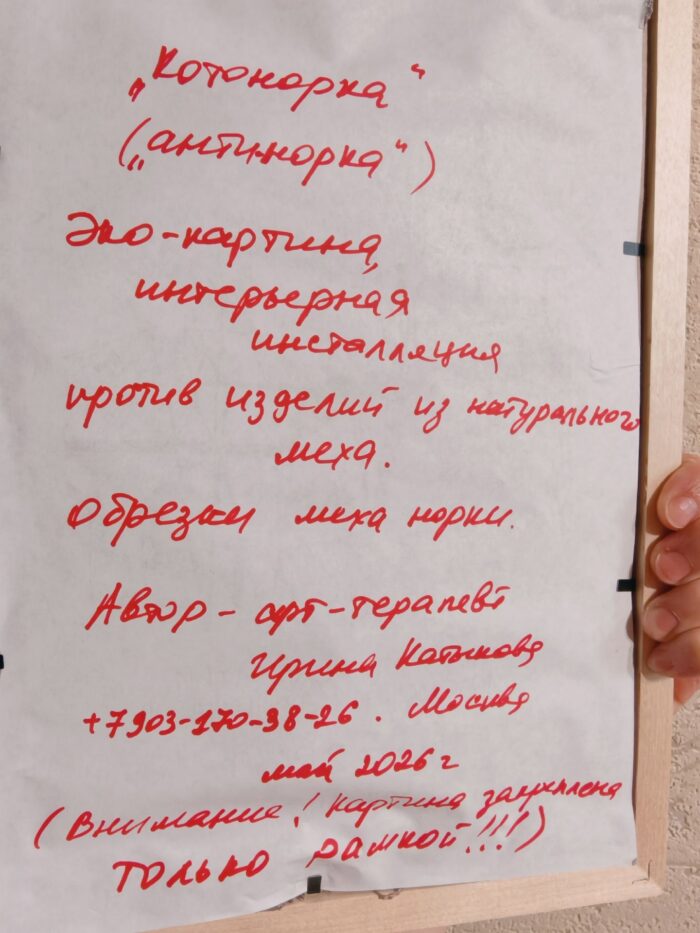 „Котонорка“
(„антинорка“)
Эко-картина,
интерьерная
инсталляция
против изделий из натурального
меха.
Обрезки меха норки.
Автор - арт-терапевт
Ирина Катыкова
+7903-170-38-26. Москва
май 2026 г
(Внимание! Картина закреплена
только рамкой!!!)